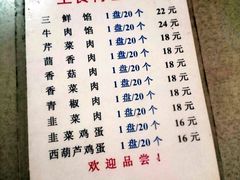 三鲜馅 1盘/20个 22元
牛肉馅 1盘/20个 24元
芹菜肉 1盘/20个 18元
茴香肉 1盘/20个 18元
香菇肉 1盘/20个 18元
青椒肉 1盘/20个 18元
韭菜肉 1盘/20个 18元
韭菜鸡蛋 1盘/20个 16元
西葫芦鸡蛋 1盘/20个 16元
欢迎品尝！